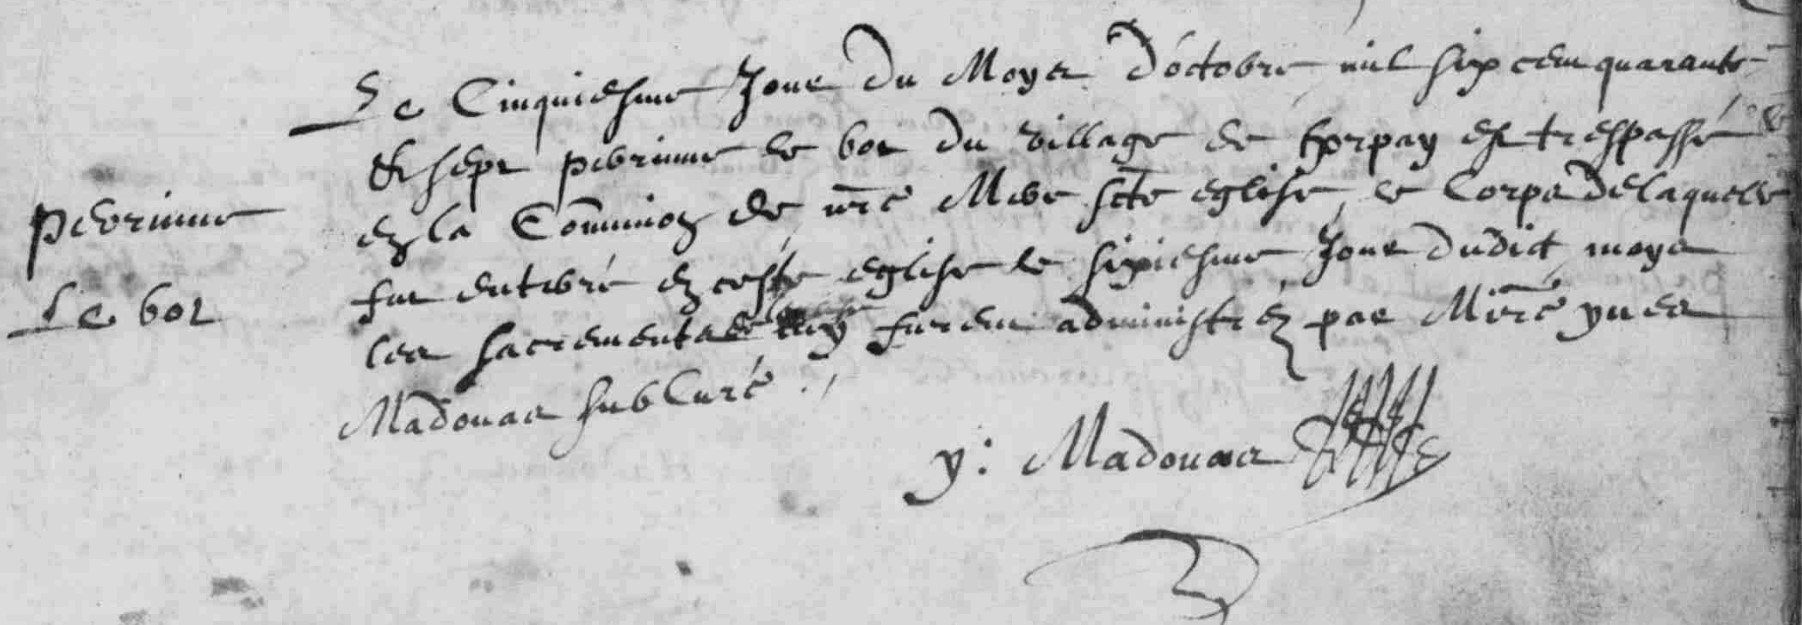 Le Cinquiesme Jour du Moys d'octobre mil six cent quarante
& sept perrinne le bot du village de est trespassé
en la Commũion de nr̃e Mere scte eglise, le Corps de laquelle
fut enterré en ceste eglise le sixiesme Jour dudict moys
les sacrements luy furent administréz par Mire yues
Madouas sub Curé
perrinne
Le bot
y: Madouas